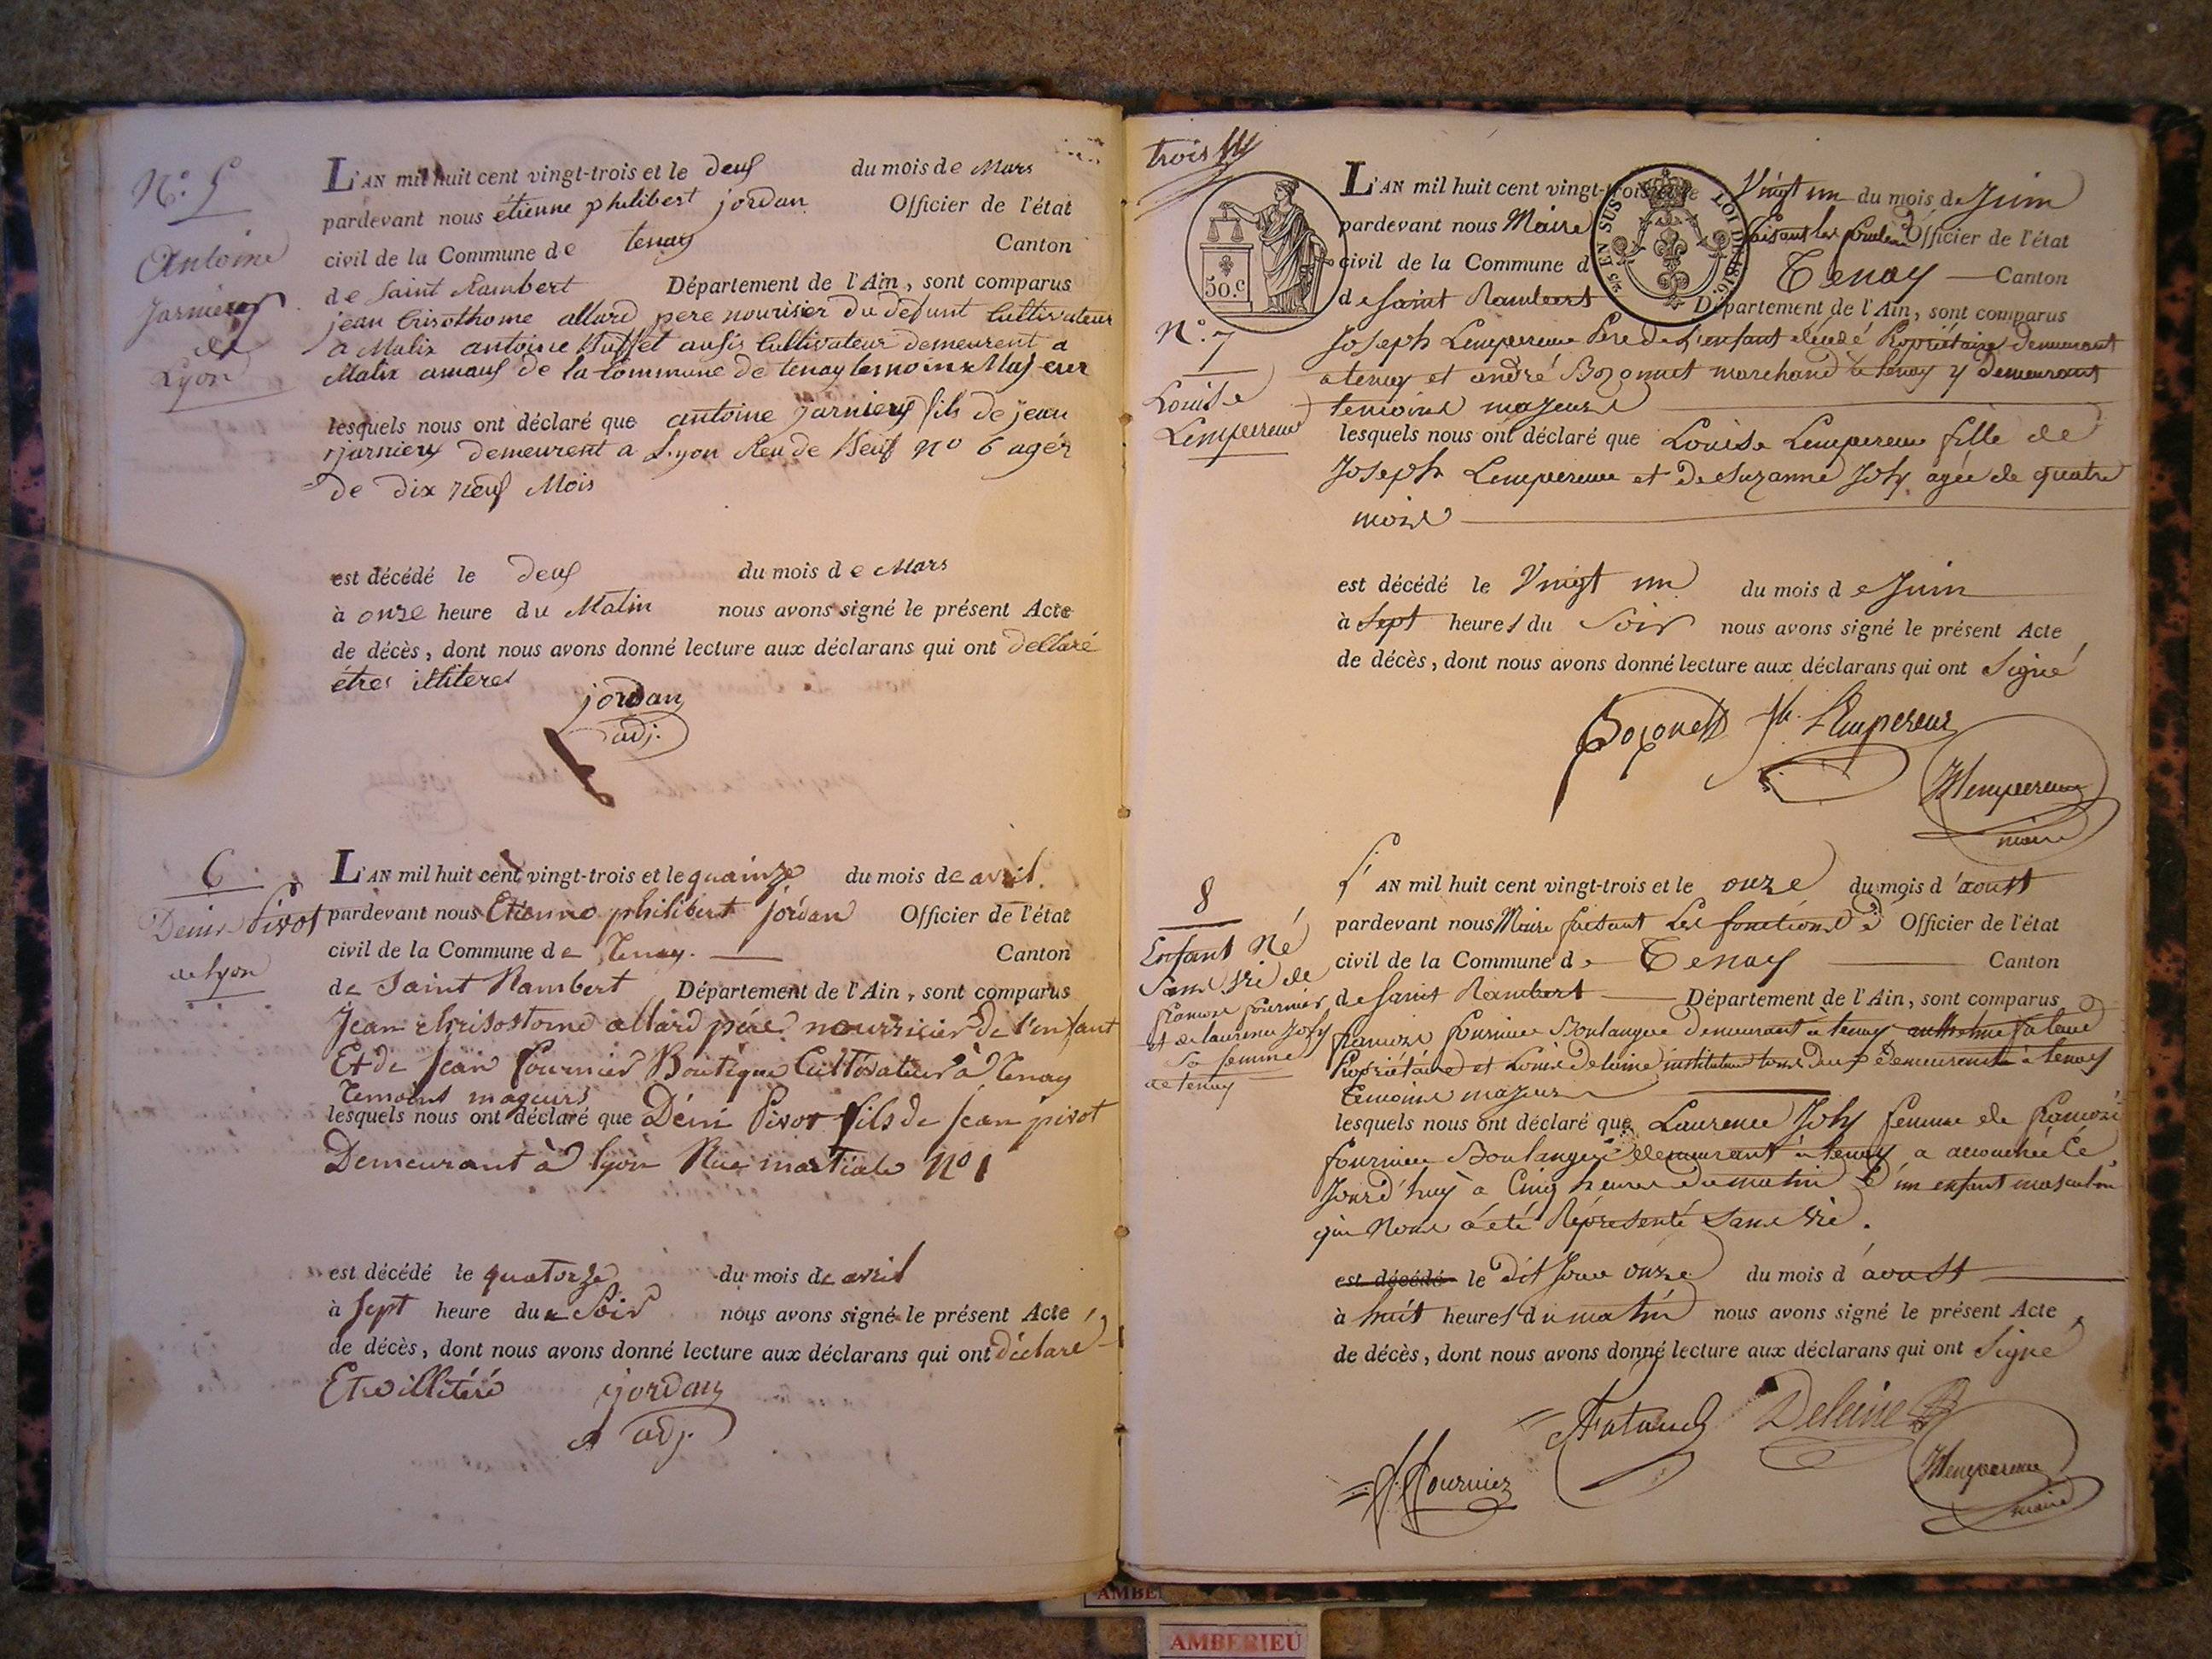 N.º 5
Antoine
Jarnieux
de
Lyon
L'AN mil huit cent vingt-trois et le deux du mois de Mars
pardevant nous étienne philibert jordan Officier de l'état
civil de la Commune de tenay Canton
de Saint Rambert Département de l'Ain, sont comparus
jean Crisothome allard pere nourisier du defunt Cultivateur
a Malix antoine aussis Cultivateur demeurent a
Malix amaus de la commune de tenay temoins Majeur
lesquels nous ont déclaré que antoine jarnieux fils de jean
jarnieux demeurent a Lyon Reu de Neuf nº 6 agér
de dix neuf Mois
est décédé le deux du mois de Mars
à onze heure du Matin nous avons signé le présent Acte
de décès, dont nous avons donné lecture aux déclarans qui ont dellaré
étres illiteres
jordan
adj.
6
Denis Pivot
de lyon
L'AN mil huit cent vingt-trois et le quainze du mois de avril
pardevant nous Etienne philibert jordan Officier de l'état
civil de la Commune de Tenay. Canton
de Saint Rambert Département de l'Ain, sont comparus
Jean chrisostome allard pére nourricier de l'enfant
Et de Jean fournier Boutique Cultivateur à Tenay
Temoins mageurs
lesquels nous ont déclaré que Déni Pivot fils de Jean pivot
Demeurant à lyon Rue martiale Nº 1
est décédé le quatorze du mois de avril
à Sept heure du Soir nous avons signé le présent Acte
de décès, dont nous avons donné lecture aux déclarans qui ont déclaré
Etre illitéré
jordan
adj.
trois
50.c
EN SUS
LOI DE 1816.
N.º 7
Louise
Lempereur
L'AN mil huit cent vingt-trois et le Vingt un du mois de Juin
pardevant nous Maire faisant les Officier de l'état
civil de la Commune d Tenay Canton
de Saint Rambert Département de l'Ain, sont comparus
Joseph Lempereur Pere de L'enfant décédé Propriétaire demeurant
a tenay et andré Bozonnet marchand à tenay y demeurant
temoins majeurs
lesquels nous ont déclaré que Louise Lempereur fille de
Joseph Lempereur et de Suzanne Joly agée de quatre
mois
est décédé le Vingt un du mois de Juin
à Sept heures du Soir nous avons signé le présent Acte
de décès, dont nous avons donné lecture aux déclarans qui ont Signé
Bozonett Jh. L'Empereur
Lempereur
maire
8
Enfant Né
Sans vie de
francois fournier
et de laurence Joly
Sa femme
de tenay
L'AN mil huit cent vingt-trois et le onze du mois d'aoust
pardevant nous Maire faisant les fonctions d' Officier de l'état
civil de la Commune de Tenay Canton
de Saint Rambert Département de l'Ain, sont comparus
francois fournier Boulanger demeurant à tenay anthelme fataud
Propriétaire et Louis Deleine instituteur tous deux Demeurant à tenay
temoins majeurs
lesquels nous ont déclaré que Laurence Joly femme de francois
fournier Boulanger demeurant à tenay a accouchée Cé
Jourd'huy à Cinq heures du matin d'un enfant masculin
qui Nous a été Représenté Sans vie.
est décédé le dit Jour onze du mois d'aoust
à huit heures du matin nous avons signé le présent Acte
de décès, dont nous avons donné lecture aux déclarans qui ont Signé
Fataud Deleine
Fournier
Lempereur
maire
AMBERIEU